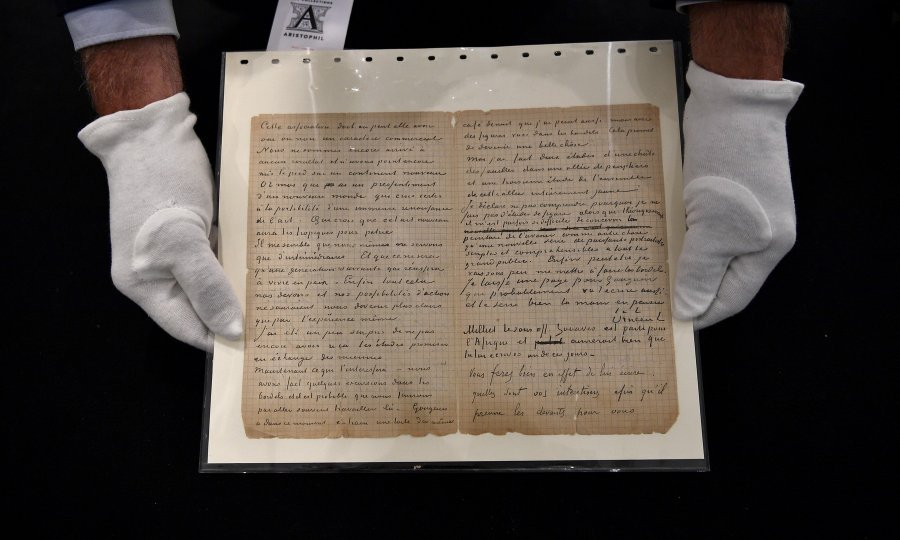 COLLECTIONS
A
ARISTOPHIL
Cette association dont on peut elle avoir
oui ou non un caractère commercial
Nous ne sommes encore arrivé à
aucun résultat et n'avons point encore
mis le pied sur un continent nouveau
Or moi que as un pressentiment
d'un nouveau monde que crois certes
à la possibilité d'une immense renaissance
de l'art. Qui crois que cet art nouveau
aura les tropiques pour patrie.
Il me semble que nous mêmes ne servons
que d'intermédiaires. Et que ce n'est
qu'une génération suivante qui réussira
à vivre en paix. Enfin tout cela
nos devoirs et nos possibilités d'action
ne sauraient nous devenir plus clairs
que par l'expérience même.
J'ai été un peu surpris de ne pas
encore avoir reçu les études promises
en échange des miennes.
Maintenant ce qui t'intéressera – nous
avons fait quelques excursions dans les
bordels et il est probable que nous finirons
par aller souvent travailler là. Gauguin
a dans ce moment en train une toile du même
café de nuit que j'ai peint aussi mais avec
des figures vues dans les bordels. Cela promet
de devenir une belle chose.
moi j'ai fait deux études d'une chûte
des feuilles dans une allée de peupliers
et une troisieme étude de l'ensemble
de cette allée entièrement jaune.
Je déclare ne pas comprendre pourquoi je ne
fais pas d'études de figure alors que théoriquement
il m'est parfois si difficile de concevoir la
peinture de l'avenir comme autre chose
qu'une nouvelle série de puissants portraitistes
simples et compréhensibles à tout le
grand public. Enfin peut être je
vais sous peu me mettre à faire les bordels.
je laisse une page pour Gauguin
qui probablement va t'écrire aussi
et te serre bien la main en pensée
t. à t.
Vincent
Milliet le sous off. Zouaves est parti pour
l'Afrique et aimerait bien que
tu lui écrives un de ces jours –
Vous ferez bien en effet de lui écrire
quelles sont vos intentions afin qu'il
prenne les devants pour vous